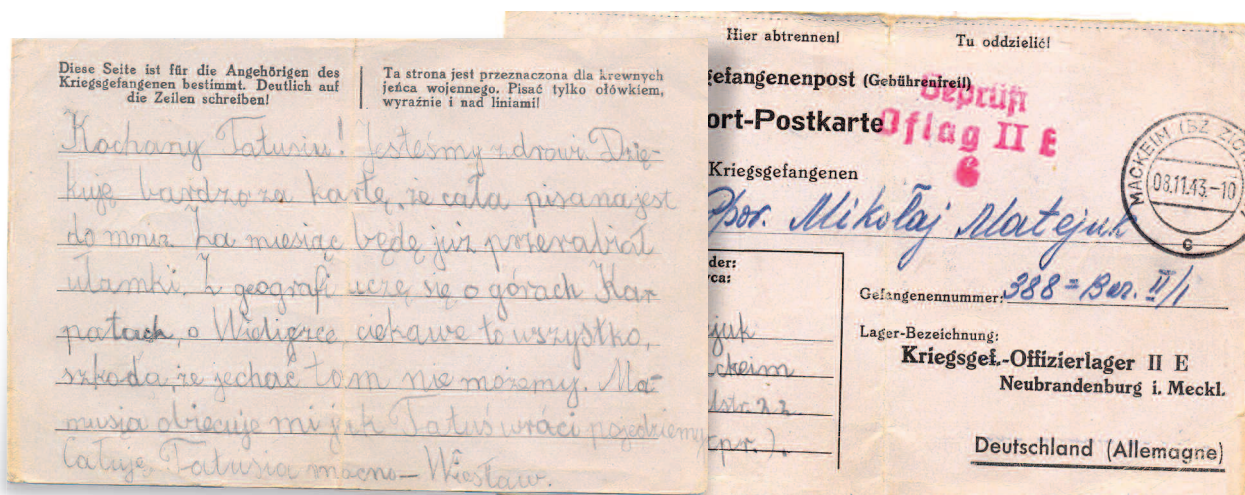 Diese Seite ist für die Angehörigen des
Kriegsgefangenen bestimmt. Deutlich auf
die Zeilen schreiben!
Ta strona jest przeznaczona dla krewnych
jeńca wojennego. Pisać tylko ołówkiem,
wyraźnie i nad liniami!
Kochany Tatusiu! Jesteśmy zdrowi. Dzię-
kuję bardzo za kartę, że cała pisana jest
do mnie. Za miesiąc będę już przerabiał
ułamki. Z geografi uczę się o górach Kar-
patach, o Wieliczce, ciekawe to wszystko,
szkoda, że jechać tam nie możemy. Ma-
musia obiecuje mi jak Tatuś wróci pojedziemy
Całuję Tatusia mocno – Wiesław.
Hier abtrennen!
Tu oddzielić!
gefangenenpost (Gebührenfrei!)
Geprüft
Oflag II E
6
ort-Postkarte
MACKEIM (BZ ZICH
08.11.43.-10
c
Kriegsgefangenen
Ppor. Mikołaj Matejuk
der:
ca:
Gefangenennummer: 388 = Bar. II/1
juk
ckeim
str. 22
(pr.).
Lager-Bezeichnung:
Kriegsgef.-Offizierlager II E
Neubrandenburg i. Meckl.
Deutschland (Allemagne)